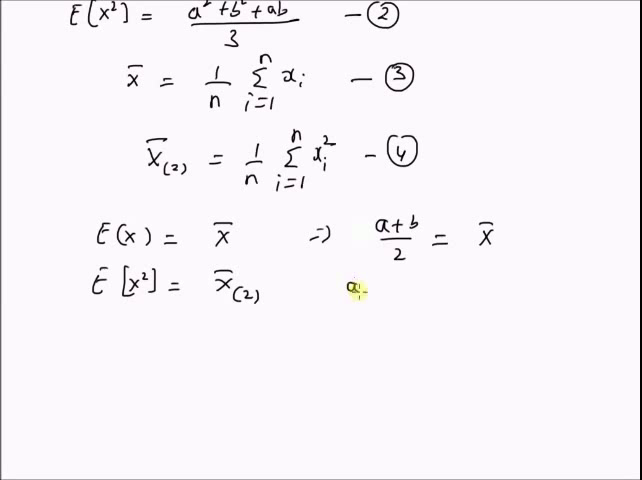 E[x²] = a² + b² + ab / 3 — ②
x̄ = 1/n Σ_{i=1}^{n} xᵢ — ③
X̄₍₂₎ = 1/n Σ_{i=1}^{n} xᵢ² — ④
E(x) = x̄ ⇒ a+b / 2 = x̄
E[x²] = X̄₍₂₎ a